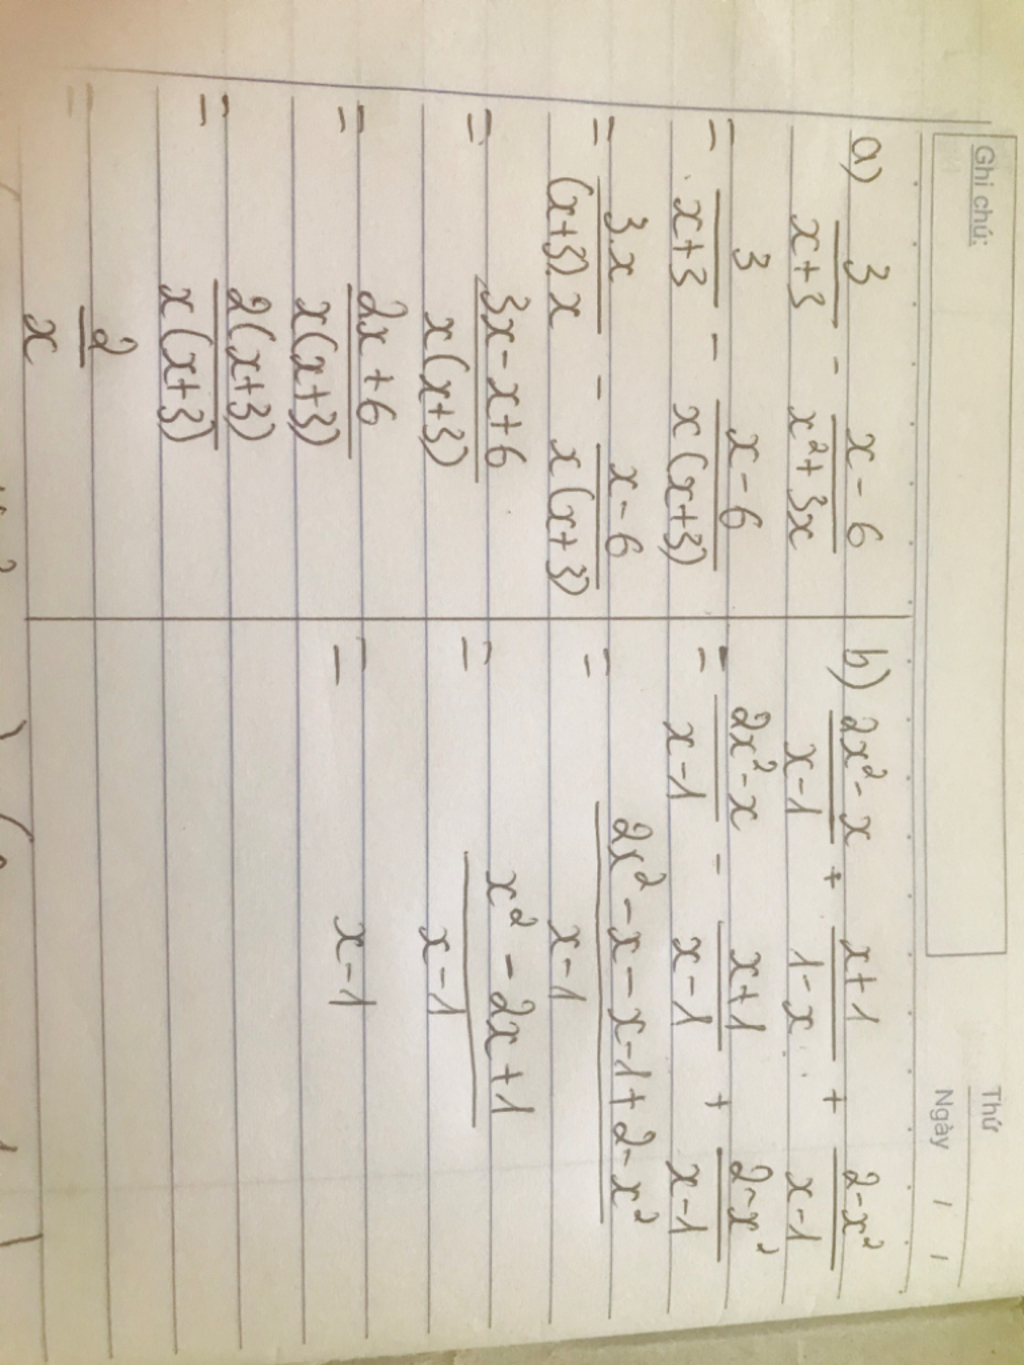 Ghi chú:
Thứ
Ngày / /
a) 3/(x+3) - (x-6)/(x²+3x)
= 3/(x+3) - (x-6)/(x(x+3))
= 3.x/((x+3).x) - (x-6)/(x(x+3))
= (3x-x+6)/(x(x+3))
= (2x+6)/(x(x+3))
= 2(x+3)/(x(x+3))
= 2/x
b) (2x²-x)/(x-1) + (x+1)/(1-x) + (2-x²)/(x-1)
= (2x²-x)/(x-1) - (x+1)/(x-1) + (2-x²)/(x-1)
= (2x²-x-x-1+2-x²)/(x-1)
= (x²-2x+1)/(x-1)
= x-1